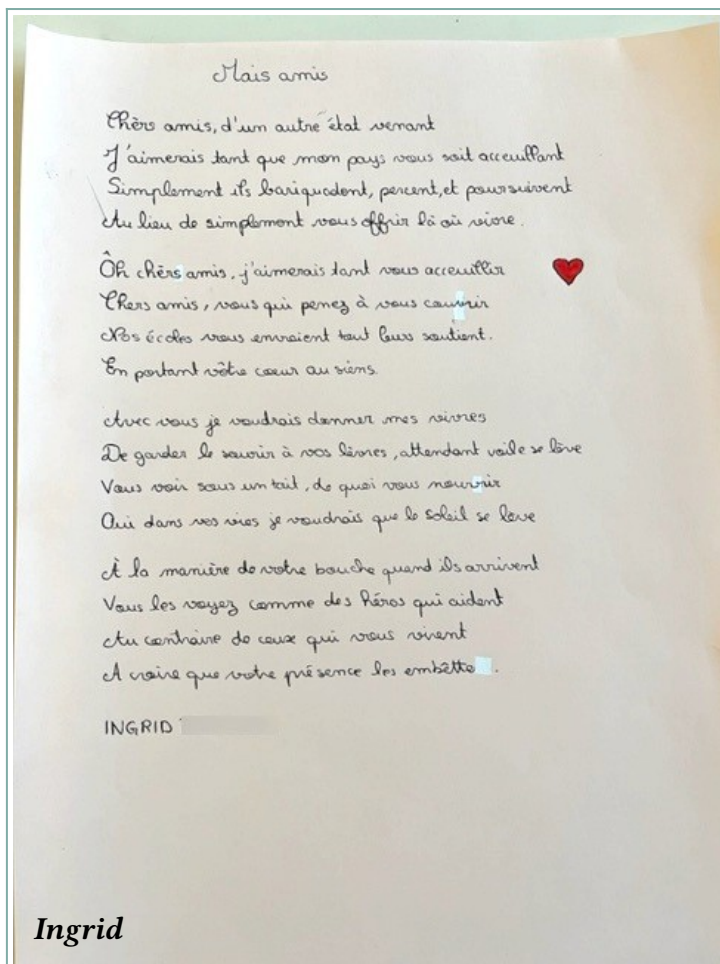 Mais amis
Chèrs amis, d'un autre état venant
J'aimerais tant que mon pays vous soit acceuillant
Simplement ils bariquadent, percent, et poursuivent
Au lieu de simplement vous offrir là où vivre.
Ôh chèrs amis, j'aimerais tant vous acceuillir
Chers amis, vous qui penez à vous couvrir
Nos écoles vous envoient tout leurs soutient.
En portant vôtre coeur au siens.
Avec vous je voudrais donner mes vivres
De garder le sourir à vos lèvres, attendant voile se lève
Vous voir sous un toit, de quoi vous nourrir
Oui dans vos vies je voudrais que le soleil se leve
À la manière de votre bouche quand ils arrivent
Vous les voyez comme des héros qui aident
Au contraire de ceux qui vous virent
A croire que votre présence les embètte.
INGRID
Ingrid